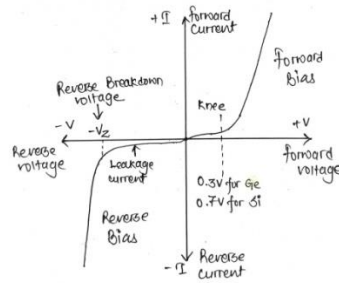 +I
forward
Current
Forward
Bias
Reverse Breakdown
voltage
Knee
-V
-Vz
+V
Reverse
voltage
Leakage
current
forward
voltage
0.3V for Ge
0.7V for Si
Reverse
Bias
-I
Reverse
current